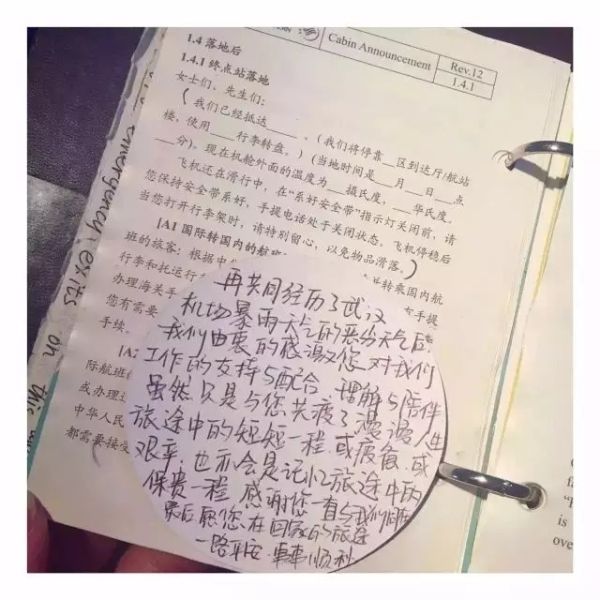 Cabin Announcement
Rev.12
1.4.1
1.4 落地后
1.4.1 终点站落地
女士们、先生们:
(我们已经抵达____。(我们将停靠__区到达厅/航站
楼,使用___行李转盘。)(当地时间是__月__日__点
__分)。现在机舱外面的温度为__摄氏度,__华氏度。
飞机还在滑行中,在“系好安全带”指示灯关闭前,请
您保持安全带系好,手提电话处于关闭状态。飞机停稳后
当您打开行李架时,请特别留心,以免物品滑落。)
[A1 国际转国内的航班
班的旅客:根据中 转乘国内航
行李和托运行 手提
办理海关手
您有需要
手续。
[A2
际航班
或办理
中华人民
都需要接受
emergency exits on this
再共同经历了武汉
机场暴雨天气的恶劣天气后
我们由衷的感激您对我们
工作的支持与配合 理解与陪伴
虽然只是与您共度了漫漫人生
旅途中的短短一程,或疲惫,或
艰辛 也亦会是记忆旅途中的
保贵一程 感谢您一直与我们
最后愿您在回家的旅途
一路平安 事事顺利